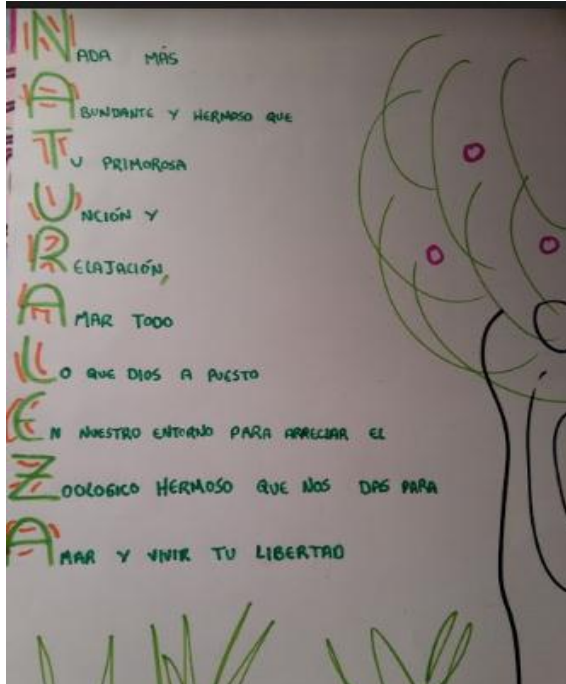 NADA MÁS
ABUNDANTE Y HERMOSO QUE
TU PRIMOROSA
UNCIÓN Y
RELAJACIÓN,
AMAR TODO
LO QUE DIOS A PUESTO
EN NUESTRO ENTORNO PARA ARRECIAR EL
ZOOLOGICO HERMOSO QUE NOS DAS PARA
AMAR Y VIVIR TU LIBERTAD